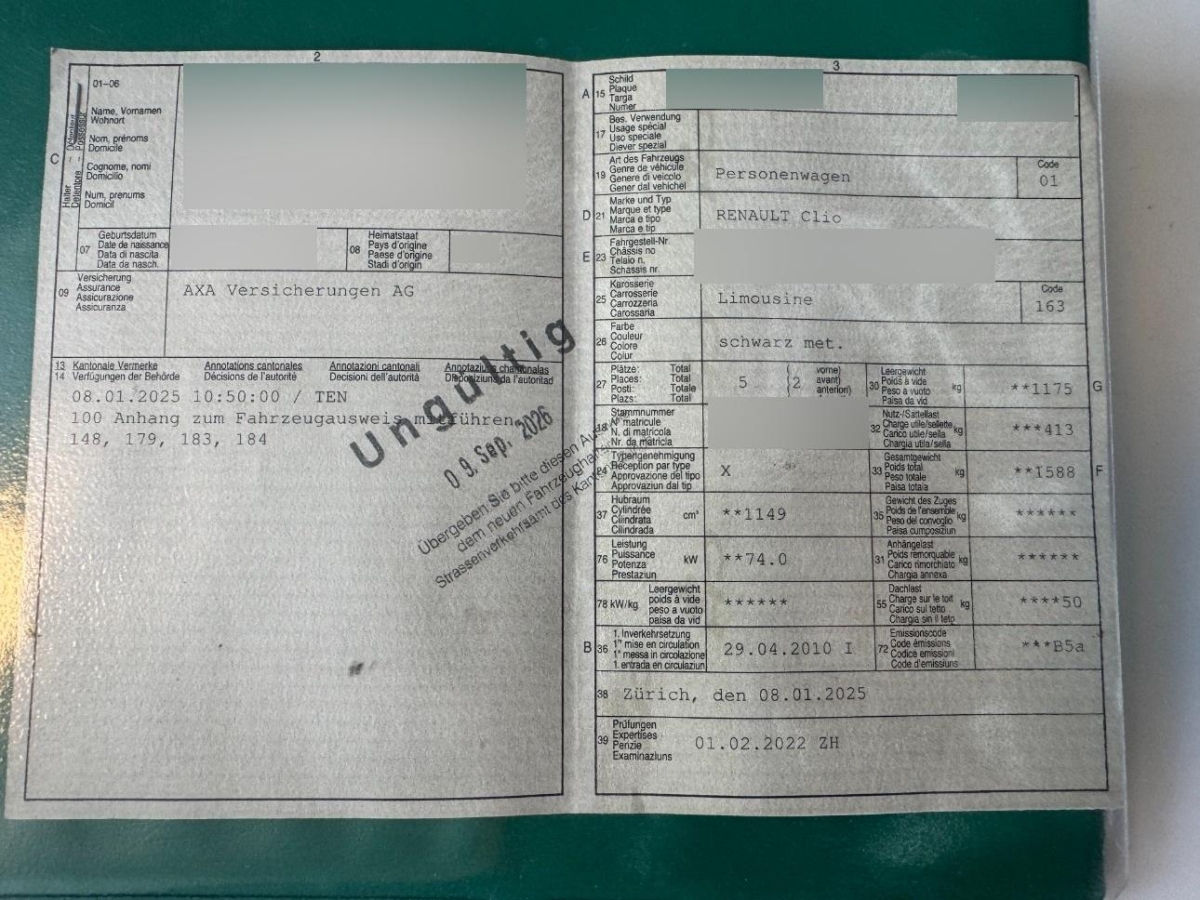 2
01-06
Name, Vornamen
Wohnort
Nom, prénoms
Domicile
Cognome, nomi
Domicilio
Num, prenums
Domicil
C
Halter
Détenteur
Detentore
Possessur
07
Geburtsdatum
Date de naissance
Data di nascita
Data da nasch.
08
Heimatstaat
Pays d'origine
Paese d'origine
Stadi d'origin
09
Versicherung
Assurance
Assicurazione
Assicuranza
AXA Versicherungen AG
13 Kantonale Vermerke Annotations cantonales Annotazioni cantonali Annotaziuns chantonalas
14 Verfügungen der Behörde Décisions de l'autorité Decisioni dell'autorità Disposiziuns da l'autoritad
08.01.2025 10:50:00 / TEN
100 Anhang zum Fahrzeugausweis mitführen.
148, 179, 183, 184
Ungültig
09. Sep. 2026
Übergeben Sie bitte diesen
dem neuen Fahrzeughalter
Strassenverkehrsamt des Kantons
3
A 15
Schild
Plaque
Targa
Numer
17
Bes. Verwendung
Usage spécial
Uso speciale
Diever spezial
19
Art des Fahrzeugs
Genre de véhicule
Genere di veicolo
Gener dal vehichel
Personenwagen
Code
01
D 21
Marke und Typ
Marque et type
Marca e tipo
Marca e tip
RENAULT Clio
E 23
Fahrgestell-Nr.
Châssis no
Telaio n.
Schassis nr
25
Karosserie
Carrosserie
Carrozzeria
Carossaria
Limousine
Code
163
26
Farbe
Couleur
Colore
Colur
schwarz met.
27
Plätze: Total
Places: Total
Posti: Totale
Plazs: Total
5 (2
vorne)
avant)
anteriori)
30
Leergewicht
Poids à vide
Peso a vuoto
Paisa da vid
kg
**1175
G
18
Stammnummer
N° matricule
N. di matricola
Nr. da matricla
32
Nutz-/Sattellast
Charge utile/sellette
Carico utile/sella
Chargia utila/sella
kg
***413
24
Typengenehmigung
Réception par type
Approvazione del tipo
Approvaziun dal tip
X
33
Gesamtgewicht
Poids total
Peso totale
Paisa totala
kg
**1588
F
37
Hubraum
Cylindrée
Cilindrata
Cilindrada
cm³
**1149
35
Gewicht des Zuges
Poids de l'ensemble
Peso del convoglio
Paisa cumposiziun
kg
******
76
Leistung
Puissance
Potenza
Prestaziun
kW
**74.0
31
Anhängelast
Poids remorquable
Carico rimorchiato
Chargia annexa
kg
******
78 kW/kg
Leergewicht
poids à vide
peso a vuoto
paisa da vid
******
55
Dachlast
Charge sur le toit
Carico sul tetto
Chargia sin il tetg
kg
****50
B 36
1. Inverkehrsetzung
1re mise en circulation
1a messa in circolazione
1. entrada en circulaziun
29.04.2010 I
72
Emissionscode
Code émissions
Codice emissioni
Code d'emissiuns
***B5a
38 Zürich, den 08.01.2025
39
Prüfungen
Expertises
Perizie
Examinaziuns
01.02.2022 ZH